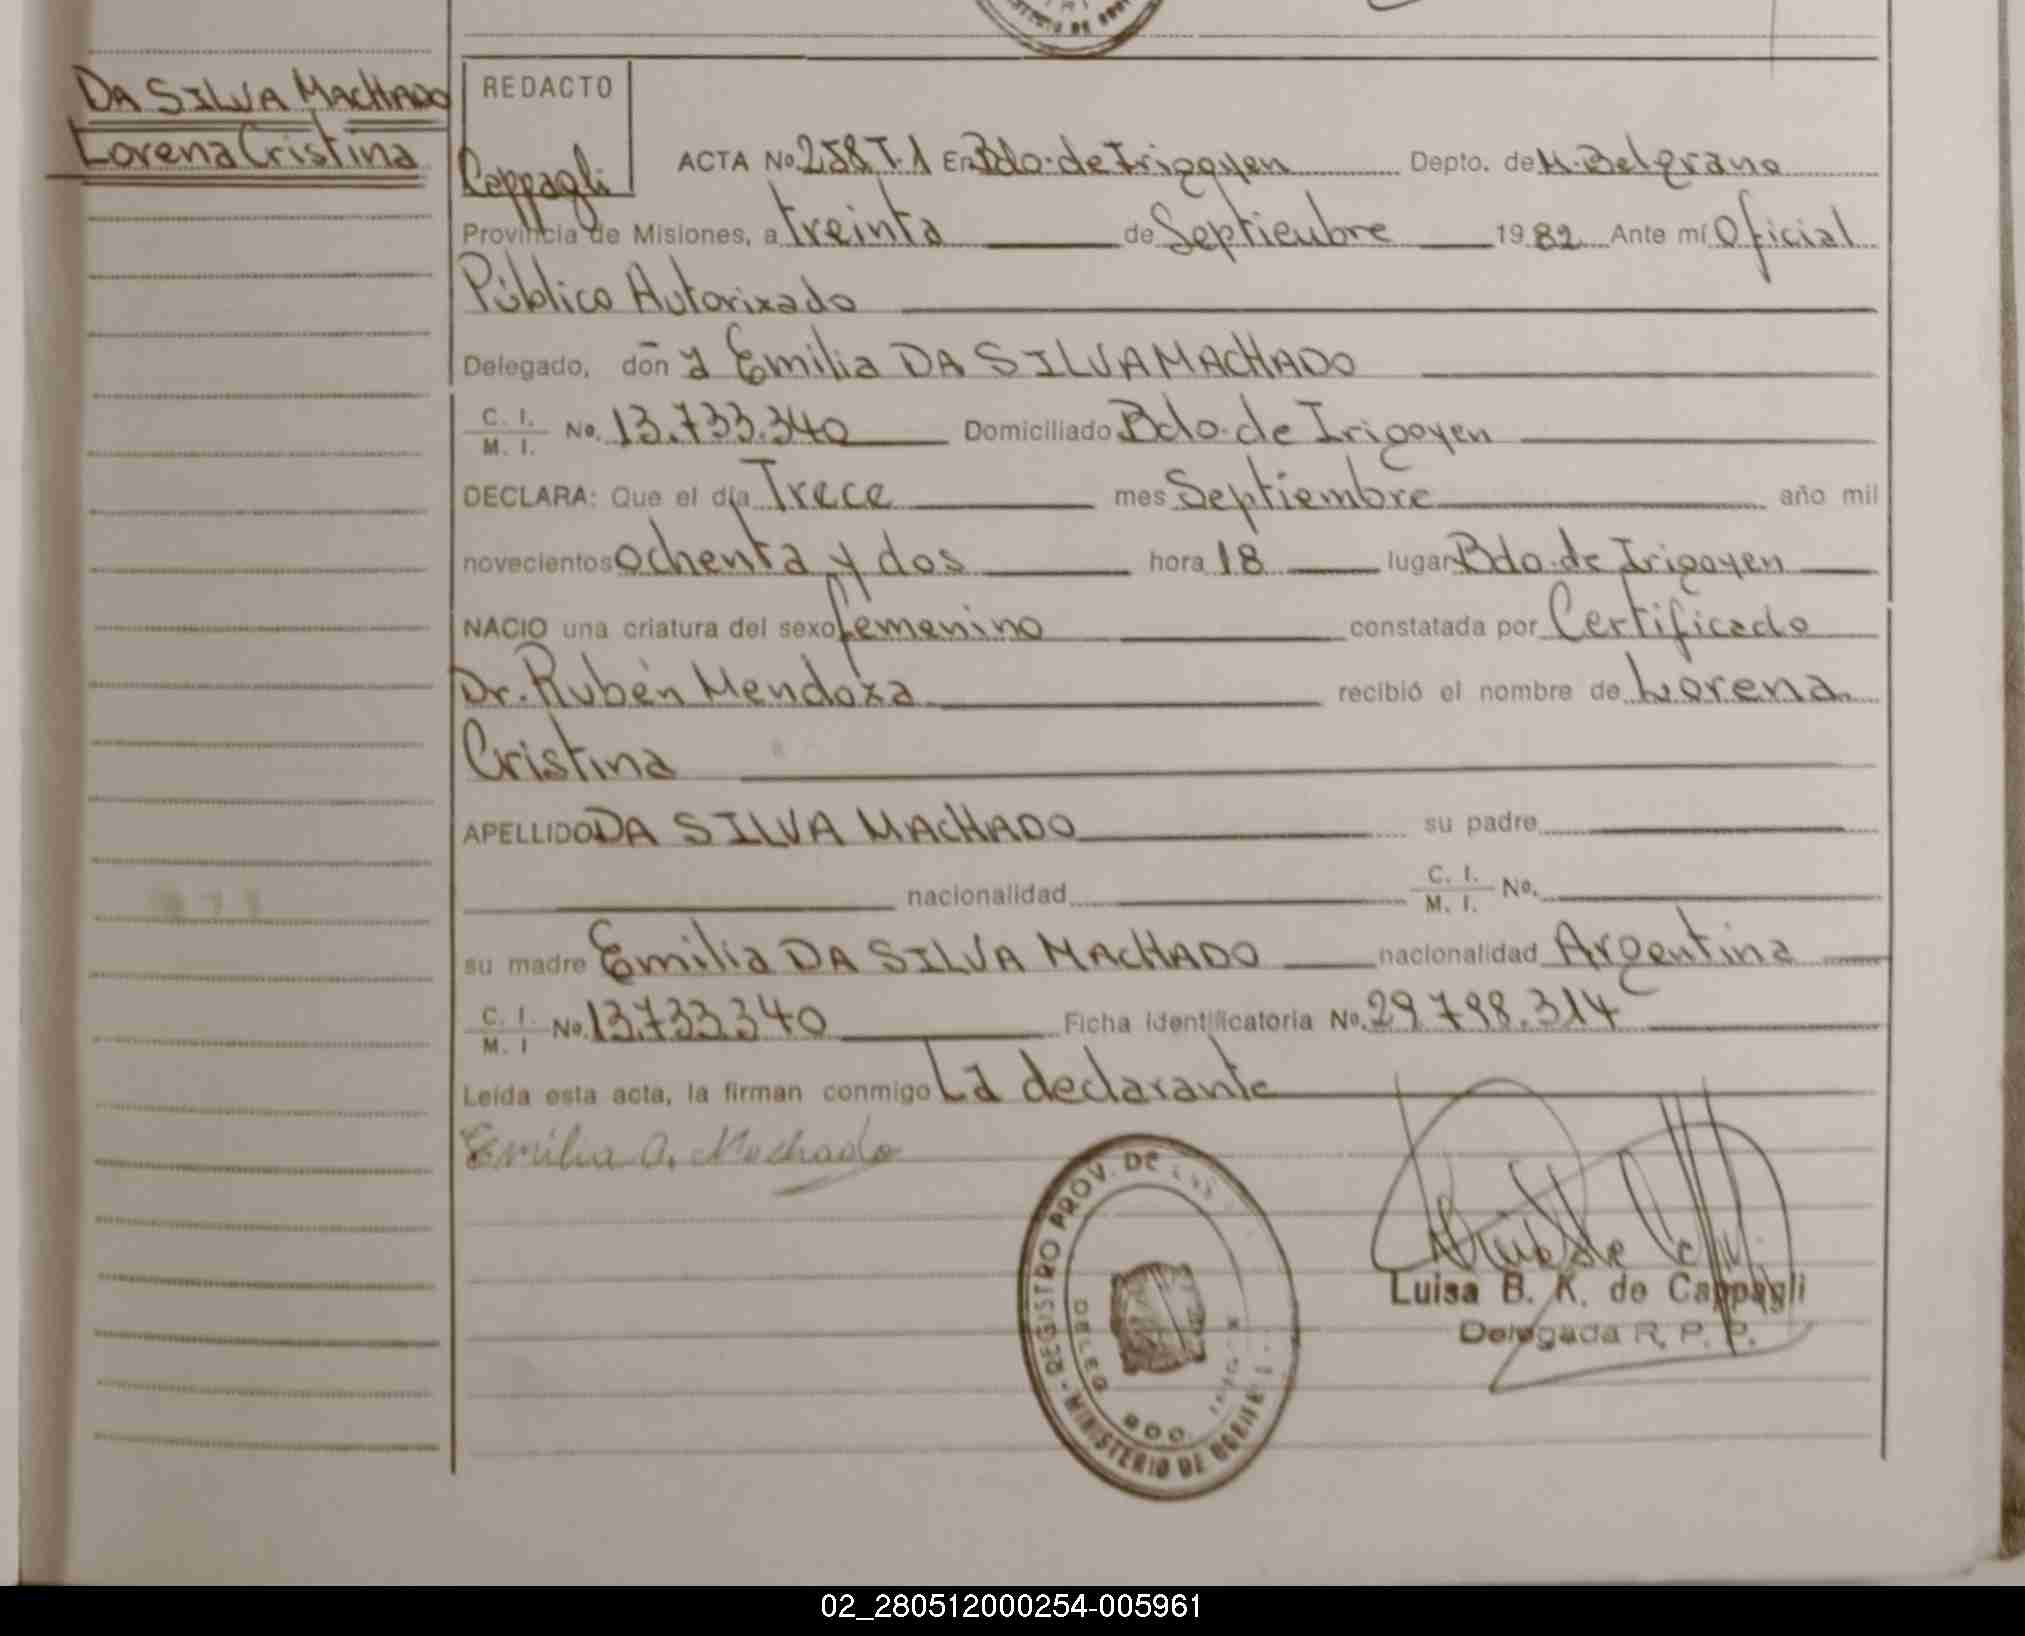 DA SILVA MACHADO
Lorena Cristina
REDACTO
Cappagli
ACTA No. 258 T.1 En Bdo. de Irigoyen Depto. de M. Belgrano
Provincia de Misiones, a treinta de Septiembre 1982 Ante mí Oficial
Público Autorizado
Delegado, don y Emilia DA SILVA MACHADO
C. I. / M. I. No. 13.733.340 Domiciliado Bdo. de Irigoyen
DECLARA: Que el día Trece mes Septiembre año mil
novecientos ochenta y dos hora 18 lugar Bdo. de Irigoyen
NACIO una criatura del sexo femenino constatada por Certificado
Dr. Rubén Mendoza recibió el nombre de Lorena
Cristina
APELLIDO DA SILVA MACHADO su padre
nacionalidad C. I. / M. I. No.
su madre Emilia DA SILVA MACHADO nacionalidad Argentina
C. I. / M. I No. 13.733.340 Ficha identificatoria No. 29.798.314
Leída esta acta, la firman conmigo La declarante
Emilia Machado
REGISTRO PROV. DE
DELEG
BDO.
MINISTERIO DE
Luisa B. K. de Cappagli
Delegada R. P. P.
02_280512000254-005961